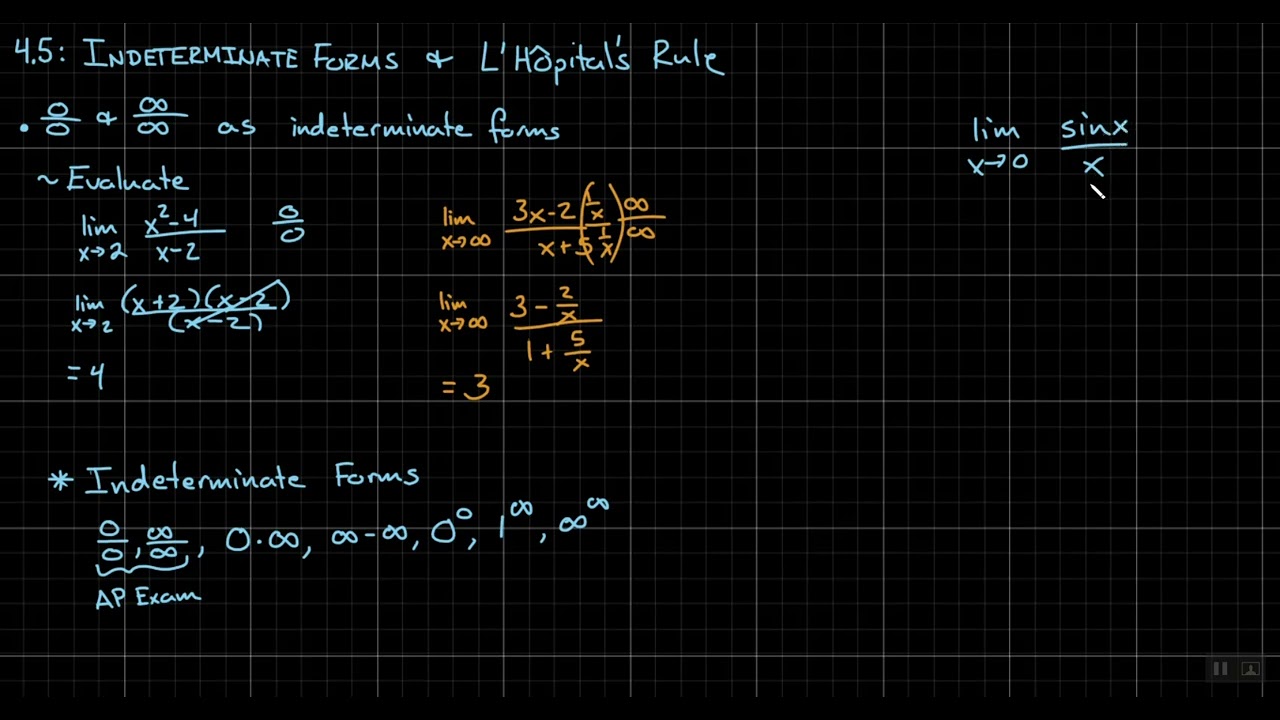 4.5: INDETERMINATE FORMS & L'Hôpital's Rule
• 0/0 & ∞/∞ as indeterminate forms
~ Evaluate
lim x→2 (x²-4)/(x-2) 0/0
lim x→2 (x+2)(x-2)/(x-2)
= 4
lim x→∞ (3x-2)/(x+5) (1/x)/(1/x) ∞/∞
lim x→∞ (3 - 2/x)/(1 + 5/x)
= 3
* Indeterminate Forms
0/0, ∞/∞, 0·∞, ∞-∞, 0^0, 1^∞, ∞^∞
AP Exam
lim x→0 sinx/x